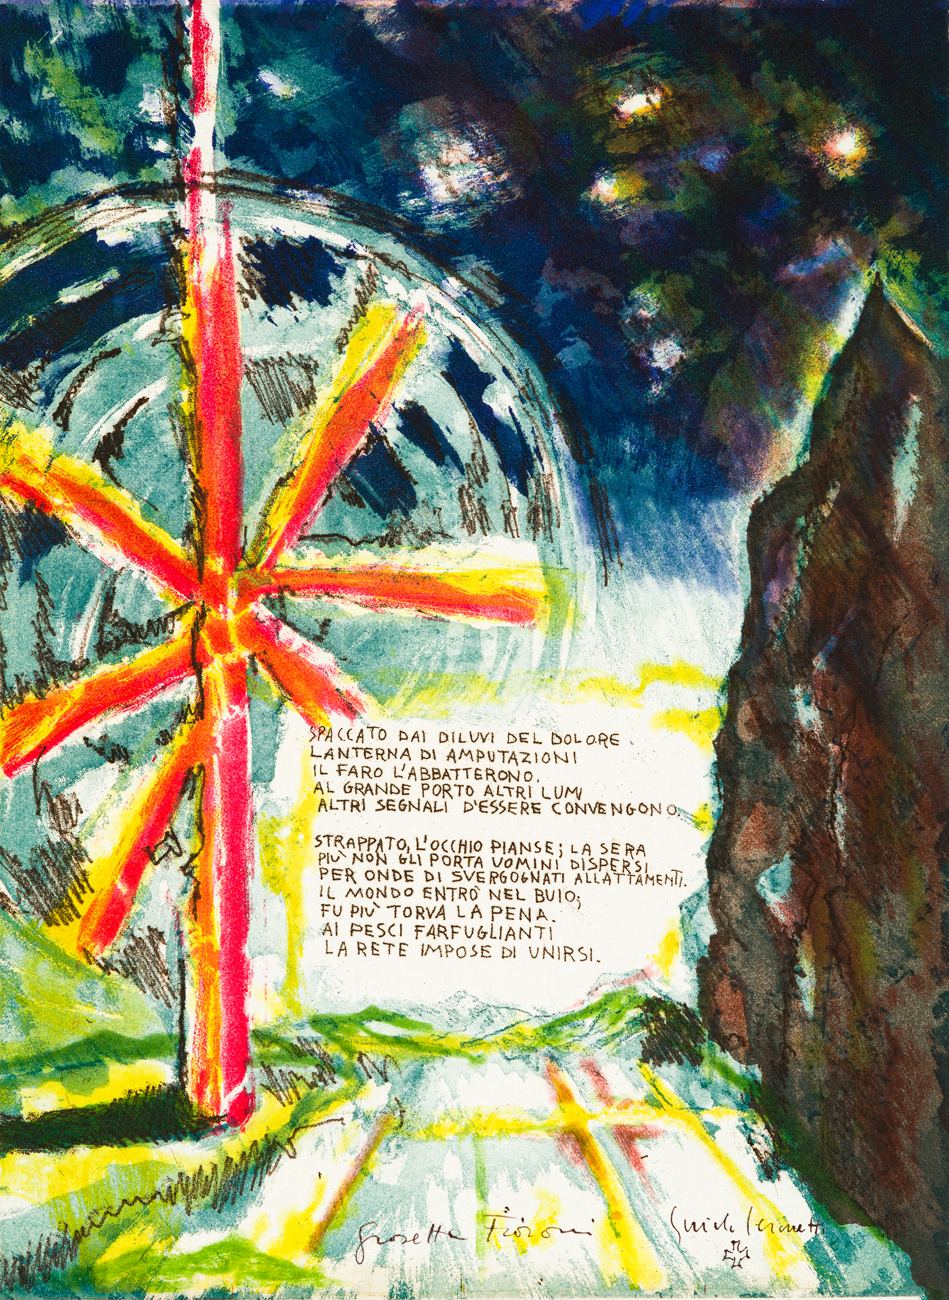 SPACCATO DAI DILUVI DEL DOLORE
LANTERNA DI AMPUTAZIONI
IL FARO L'ABBATTERONO.
AL GRANDE PORTO ALTRI LUMI
ALTRI SEGNALI D'ESSERE CONVENGONO.
STRAPPATO, L'OCCHIO PIANSE; LA SERA
PIÙ NON GLI PORTA UOMINI DISPERSI
PER ONDE DI SVERGOGNATI ALLATTAMENTI.
IL MONDO ENTRÒ NEL BUIO;
FU PIÙ TORVA LA PENA.
AI PESCI FARFUGLIANTI
LA RETE IMPOSE DI UNIRSI.
Giosetta Fioroni
Guido Ceronetti